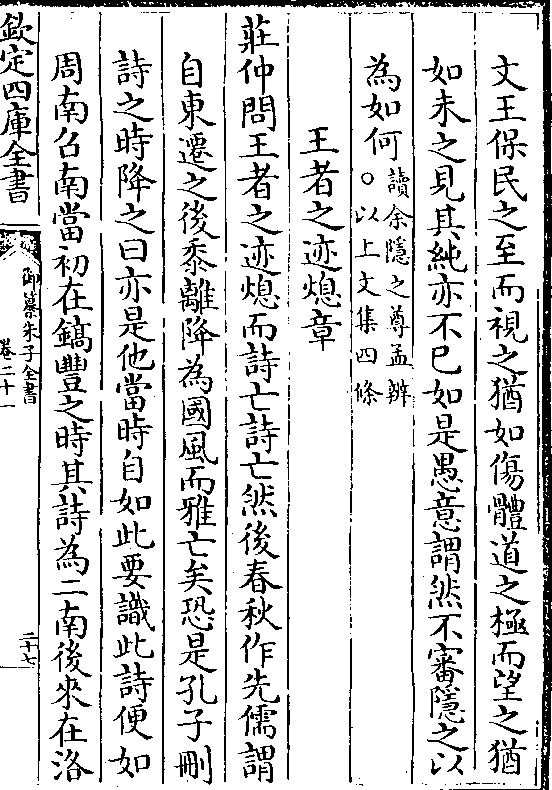 文王保民之至而視之猶如傷體道之極而望之猶
如未之見其純亦不已如是愚意謂然不審隱之以
為如何讀余隱之尊孟辨○以上文集四條
王者之迹熄章
莊仲問王者之迹熄而詩亡詩亡然後春秋作先儒謂
自東遷之後黍離降為國風而雅亡矣恐是孔子刪
詩之時降之曰亦是他當時自如此要識此詩便如
周南召南當初在鎬豐之時其詩為二南後來在洛
欽定四庫全書
御纂朱子全書
卷二十一
二十七